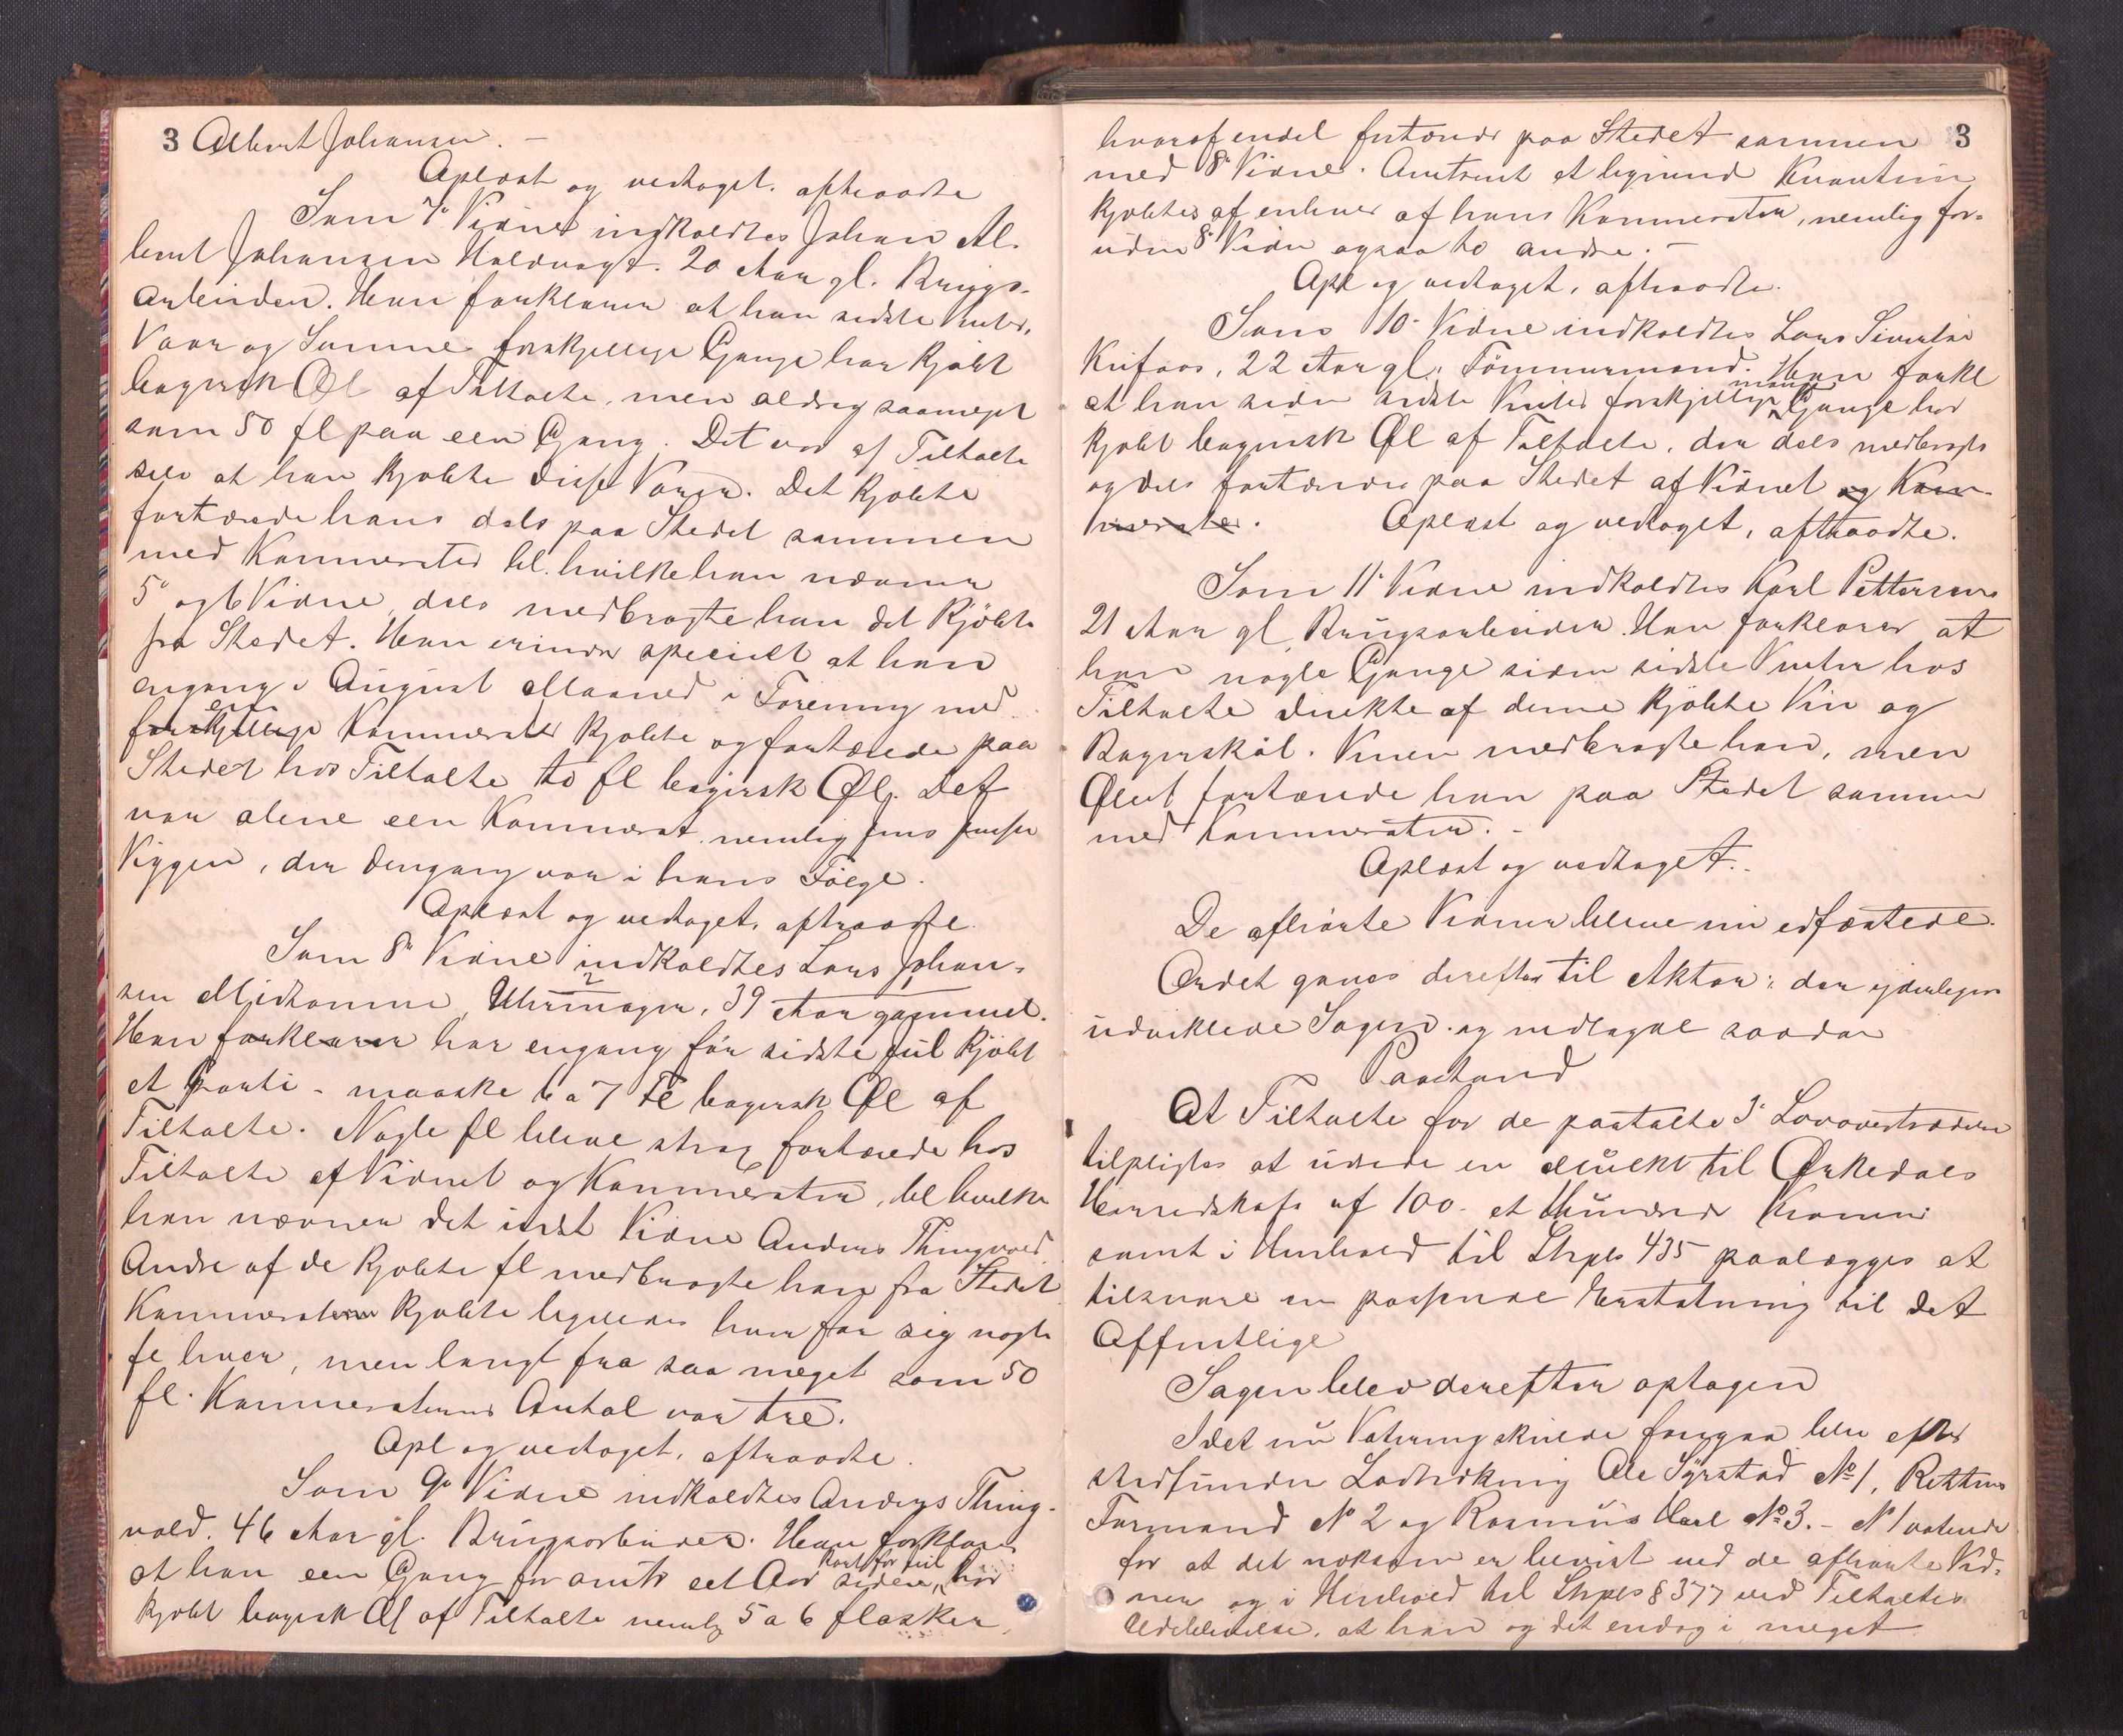 3 Albert Johansen. –
Oplæst og vedtaget. aftraadte
Som 7de Vidne indkaldtes Johan Al-
bert Johansen Holdvagt. 20 Aar gl. Brugs-
arbeider. Han forklarer at han sidste Vinter,
Vaar og Sommer forskjellige Gange har kjøbt
bayersk Øl af Tiltalte, men aldrig saameget
som 50 fl paa een Gang. Det var af Tiltalte
selv at han kjøbte disse Varer. Det kjøbte
fortærede hans dels paa Stedet sammen
med Kammerater til hvilke han nævner
5' og 6 Vidne, dels medbragte han det kjøbte
fra Stedet. Han erindrer specielt at han
engang i August Maaned i Forening med
en
forskjellige Kammerater kjøbte og fortærede paa
Stedet hos Tiltalte to fl bayersk Øl. Det
var alene een Kammerat nemlig Jens Jensen
Viggen, der dengang var i hans Følge.
Oplæst og vedtaget, aftraadte
Som 8de Vidne indkaldtes Lars Johan-
sen Midtømme, Uhrmager, 39 Aar gammel.
Han forklarer har engang før sidste Jul kjøbt
et Parti – maaske 6 a 7 Fl bayersk Øl af
Tiltalte. Nogle fl bleve strax fortærede hos
Tiltalte af Vidnet og Kammerater, til hvilke
han nævner det indst Vidne Anders Thingvold
Andre af de kjøbte fl medbragte han fra Stedet
Kammeraterne kjøbte ligeledes hver for sig nogle
fl hver, men langt fra saa meget som 50
fl. Kammeraternes Antal var tre.
Opl og vedtaget, aftraadte.
Som 9de Vidne indkaldtes Anders Thing-
vold. 46 Aar gl. Brugsarbeider. Han forklarer
kort før Jul
at han een Gang for omtr eet Aar siden, har
kjøbt bayersk Øl af Tiltalte nemlig 5 a 6 flasker,
hvoraf endel fortæredes paa Stedet sammen 3
med 8de Vidne. Omtrent et lignende Kvantum
kjøbtes af enhver af hans Kammerater, nemlig for-
uden 8de Vidne ogsaa to andre. –
Opl og vedtaget, aftraadte.
Som 10de Vidne indkaldtes Lars Sivertsen
Krifaas, 22 Aar gl, Tømmermand. Han forkl
mange
at han siden sidste Vinter forskjellige Gange har
kjøbt bayersk Øl af Tiltalte, der dels medbragtes
og dels fortæredes paa Stedet af Vidnet og Kam-
merater. Oplæst og vedtaget, aftraadte.
Som 11te Vidne indkaldtes Karl Pettersen
21 Aar gl, Brugsarbeider. Han forklarer at
han nogle Gange siden sidste Vinter hos
Tiltalte direkte af denne kjøbte Vin og
Bayerskøl. Vinen medbragte han, men
Ølet fortærede han paa Stedet sammen
med Kammerater. –
Oplæst og vedtaget. –
De afhørte Vidner bleve nu edfæstede.
Ordet gaves derefter til Aktor: der yderligere
udviklede Sagen og nedlagde saadan
Paastand
At Tiltalte for de paatalte 3de Lovovertrædelser
tilpligtes at udrede en Mulkt til Ørkedals
Herredskasse af 100 – et Hundrede Kroner
samt i Henhold til Strpls 435 paalægges at
tilsvare en passende Erstatning til det
Offentlige
Sagen blev derefter optagen
Idet nu Votering skulde foregaa blev efter
stedfunden Lodtrækning Ole Syrstad No 1, Rettens
Formand No 2 og Rasmus No 3. – No 1 voterede
for at det noksom er bevist ved de afhørte Vid-
ner og i Henhold til Strpls § 377 ved Tiltaltes
Udeblivelse, at han og det endog i meget